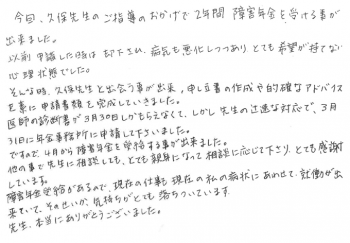 今回、久保先生のご指導のおかげで2年間 障害年金を受ける事が
出来ました。
以前 申請した時は 却下され、病気も悪化しつつあり とても希望が持てない
心理状態でした。
そんな時、久保先生と出会う事が出来、申し立書の作成や的確なアドバイス
を基に申請書類を完成していきました。
医師の診断書が3月30日しかもらえなくて、しかし 先生の迅速な対応で、3月
31日に年金事務所に申請して下さいました。
ですので 4月から障害年金を受給する事が出来ました。
他の事で先生に相談しても、とても親身になって相談に応じて下さり、とても感謝
しています。
障害年金受給があるので、現在の仕事も 現在の私の病状にあわせて、就働が出
来ていて、そのせいか、気持ちがとても落ちついています。
先生、本当にありがとうございました。